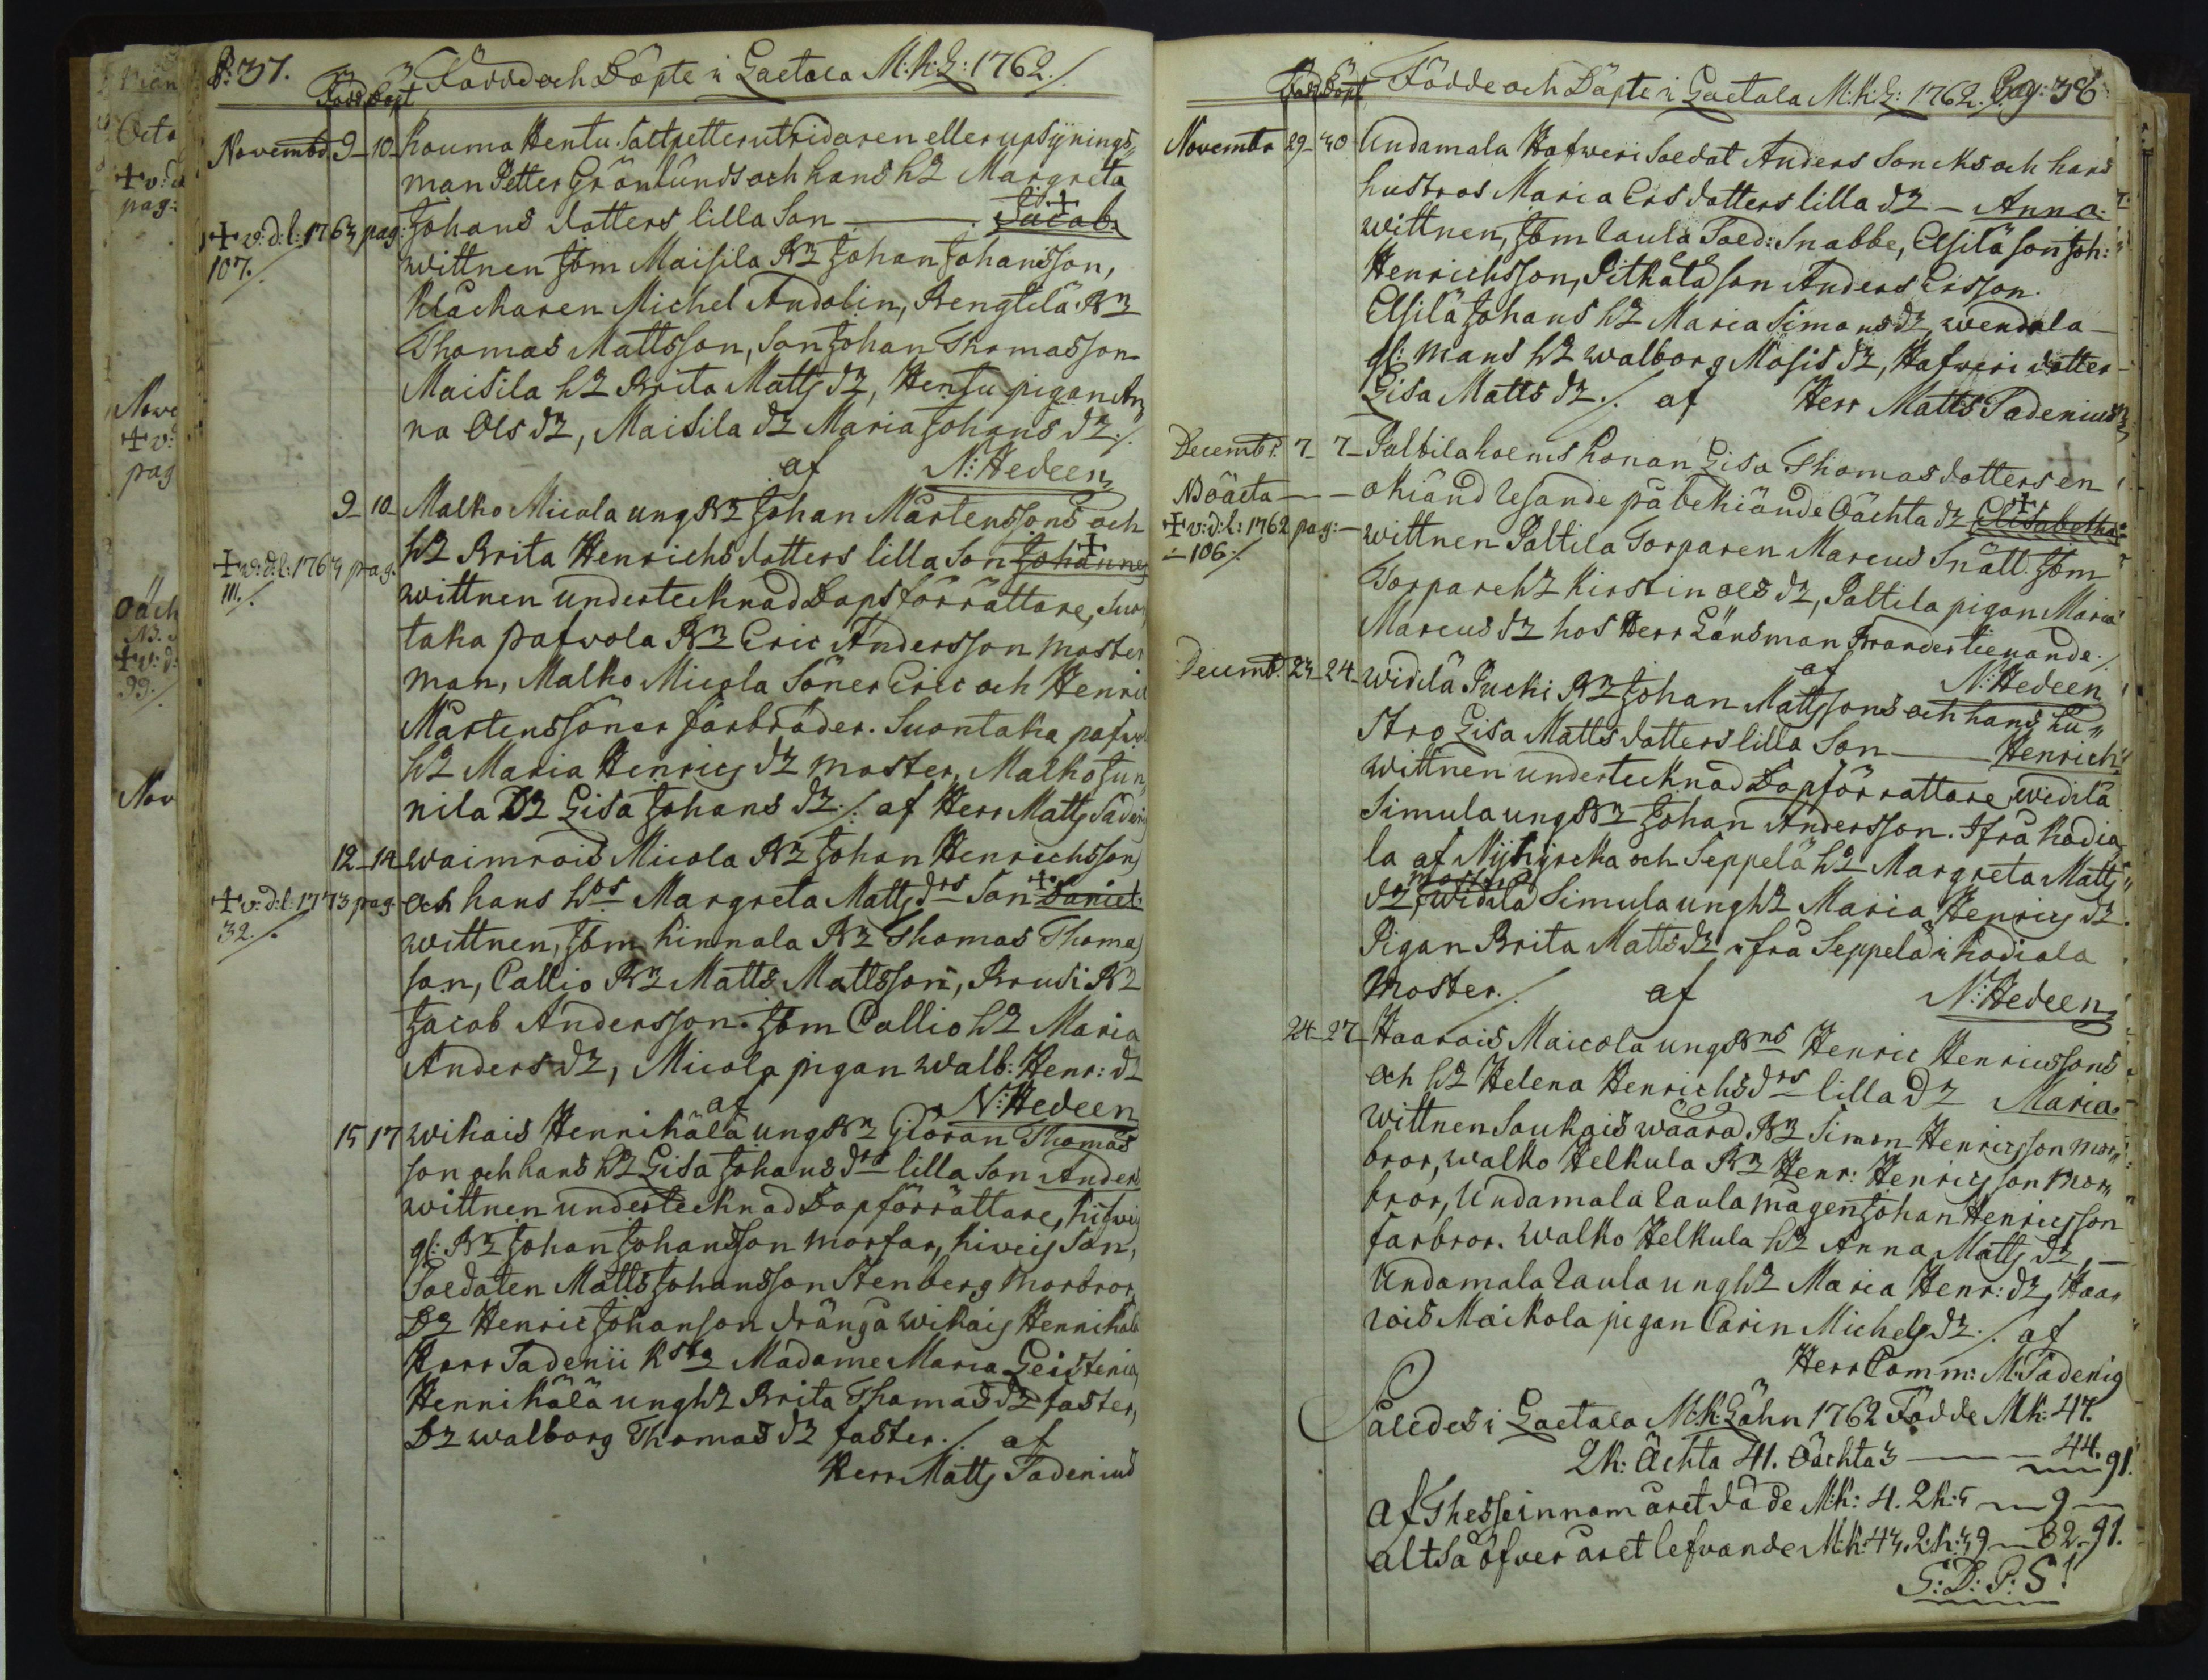 P: 37.
Född Döpt Född och Döpte i Laetala M:K:L: 1762./
Novembr. 9 10 Kauma Hentu Saltpetterutridaren eller upsynings
man Petter Grönlunds och hans h2 Margreta
✝ v:d:l: 1763 pag: Johans dotters lilla Son — Jacob.
107./. wittnen Jbm Maisila B2 Johan Johansson,
klackaren Michel Andolin, Bengtilä B2
Thomas Mattsson, Son Johan Thomasson
Maisila h2 Brita Matts d2, Hentu pigan An
na Ols d2, Maisila d2 Maria Johans d2 ./.
af N: Hedeen
9 10 Malko Micola ung B2 Johan Mårtenssons och
h2 Brita Henrichs dotters lilla Son Johannes
✝ v:d:l: 1763 pag. wittnen undertecknad Dopsförrättare, Suon
111./. taka pafwola B2 Eric Andersson moster
man, Malko Micola Söner Eric och Henric
Mårtenssöner farbröder. Suontaka pafwola
h2 Maria Henrics d2 moster, Malko Jun
nila D2 Lisa Johans d2 ./. af Herr Matts Tadenius
12 14 waimrois Micola B2 Johan Henrichsson
✝ v:d:l: 1773 pag. och hans hrs Margreta Matts drs Son Daniel.
32./. wittnen, Jbm Kinnala B2 Thomas Thoma
son, Callio B2 Matts Mattsson, Brusi B2
Jacob Andersson. Jbm Callio h2 Maria
Anders d2, Micola pigan walb: Henr: d2
af N: Hedeen
15 17 wikais Hennikälä ung B2 Giöran Thomas
son och hans h2 Lisa Johans drs lilla Son Anders
wittnen undertecknad Dopförrättare,
gl: B2 Johan Johansson morfar, kiweis Son,
Soldaten Matts Johansson Stenberg morbror
D2 Henric Johanson dräng å wikais Hennikälä
Herr Tadenii Madame Maria
Hennikälä ung h2 Brita Thomas d2 faster,
D2 walborg Thomas d2 faster ./. af
Herr Matts Tadenius
Född Döpt Födde och Döpte i Laetala M:K:L: 1762. Pag: 38
Novembr 29 30 Undamala Hafweri Soldat Anders Soncks och hans
hustros Maria Ers dotters lilla d2 — Anna.
wittnen, Jbm Laula Sold: Snabbe, Elsilä son Joh:
Henrichsson, Pitkälä son Anders Ersson.
Elsilä Johans h2 Maria Simons d2, wendola
gl: mans h2 walborg Mosis d2, Hafweri dotter
Lisa Matts d2 ./. af Herr Matts Tadenius
Decembr. 7 7 Paltila holms konan Lisa Thomas dotters en
NB oäcta — okiänd resande påbekiände Oächta d2 Elisabetha.
✝ v:d:l: 1762 pag: wittnen Paltila Torparen Marcus Snäll. Jbm
106./. Torpare h2 Kirstin Ols d2, Paltila pigan Maria
Marcus d2 hos Herr Länsman Brander tienande ./.
af N: Hedeen
Decemb. 23 24 widilä Pucki B2 Johan Mattssons och hans hu
stro Lisa Matts dotters lilla Son — Henrich.
wittnen undertecknad Dopförrättare, widilä
Simula ung B2 Johan Andersson. Ifrå Kodia
la af Nykyrcka och Seppelä h2 Margreta Matts
d2, moster, widilä Simula ung h2 Maria Henrics d2.
Pigan Brita Matts d2 ifrå Seppelä i Kodiala
Moster./. af N: Hedeen
24 27 Haarois Maicola ung Bns Henric Henricssons
och h2 Helena Henrichs drs lilla D2 Maria.
wittnen Soukais waara B2 Simon Henricsson mor
bror, walko Helkula B2 Henr: Henricsson Mor
bror, Undamala Laula mågen Johan Henricsson
farbror. walko Helkula h2 Anna Matts d2,
Undamala Laula ung h2 Maria Henr: d2, Haa
rois Maikola pigan Carin Michels d2 ./. af
Herr Comm: M: Tadenius
Således i Laetala M:K: Lähn 1762 Födde Mk: 47.
2k: Ächta 41. Oächta 3 — 44. 91.
af Thesse innom året döde Mk: 4. 2k: 5 — 9 —
altså öfver året lefvande Mk: 43. 2k: 39 — 82. 91.
S: D: P: S!